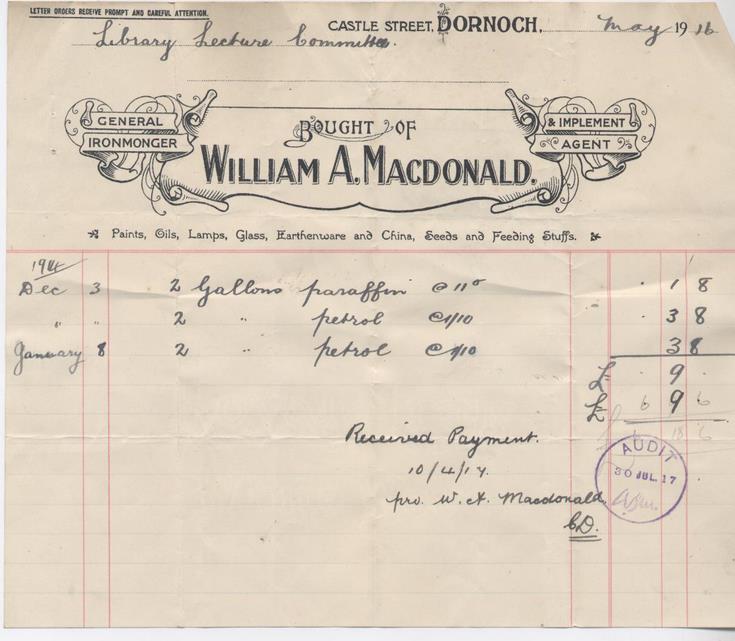 LETTER ORDERS RECEIVE PROMPT AND CAREFUL ATTENTION.
CASTLE STREET, DORNOCH, May 1916
Library Lecture Committee.
GENERAL IRONMONGER
BOUGHT OF
WILLIAM A. MACDONALD.
& IMPLEMENT AGENT
Paints, Oils, Lamps, Glass, Earthenware and China, Seeds and Feeding Stuffs.
Dec 3 2 Gallons paraffin @ 11ᴰ . 1 8
" " 2 " petrol @ 1/10 . 3 8
January 8 2 " petrol @ 1/10 3 8
£ . 9 .
£ 6 9 6
6 18 6
Received Payment.
10/4/17.
pro. W. A. Macdonald,
CD.
AUDIT
30 JUL. 17